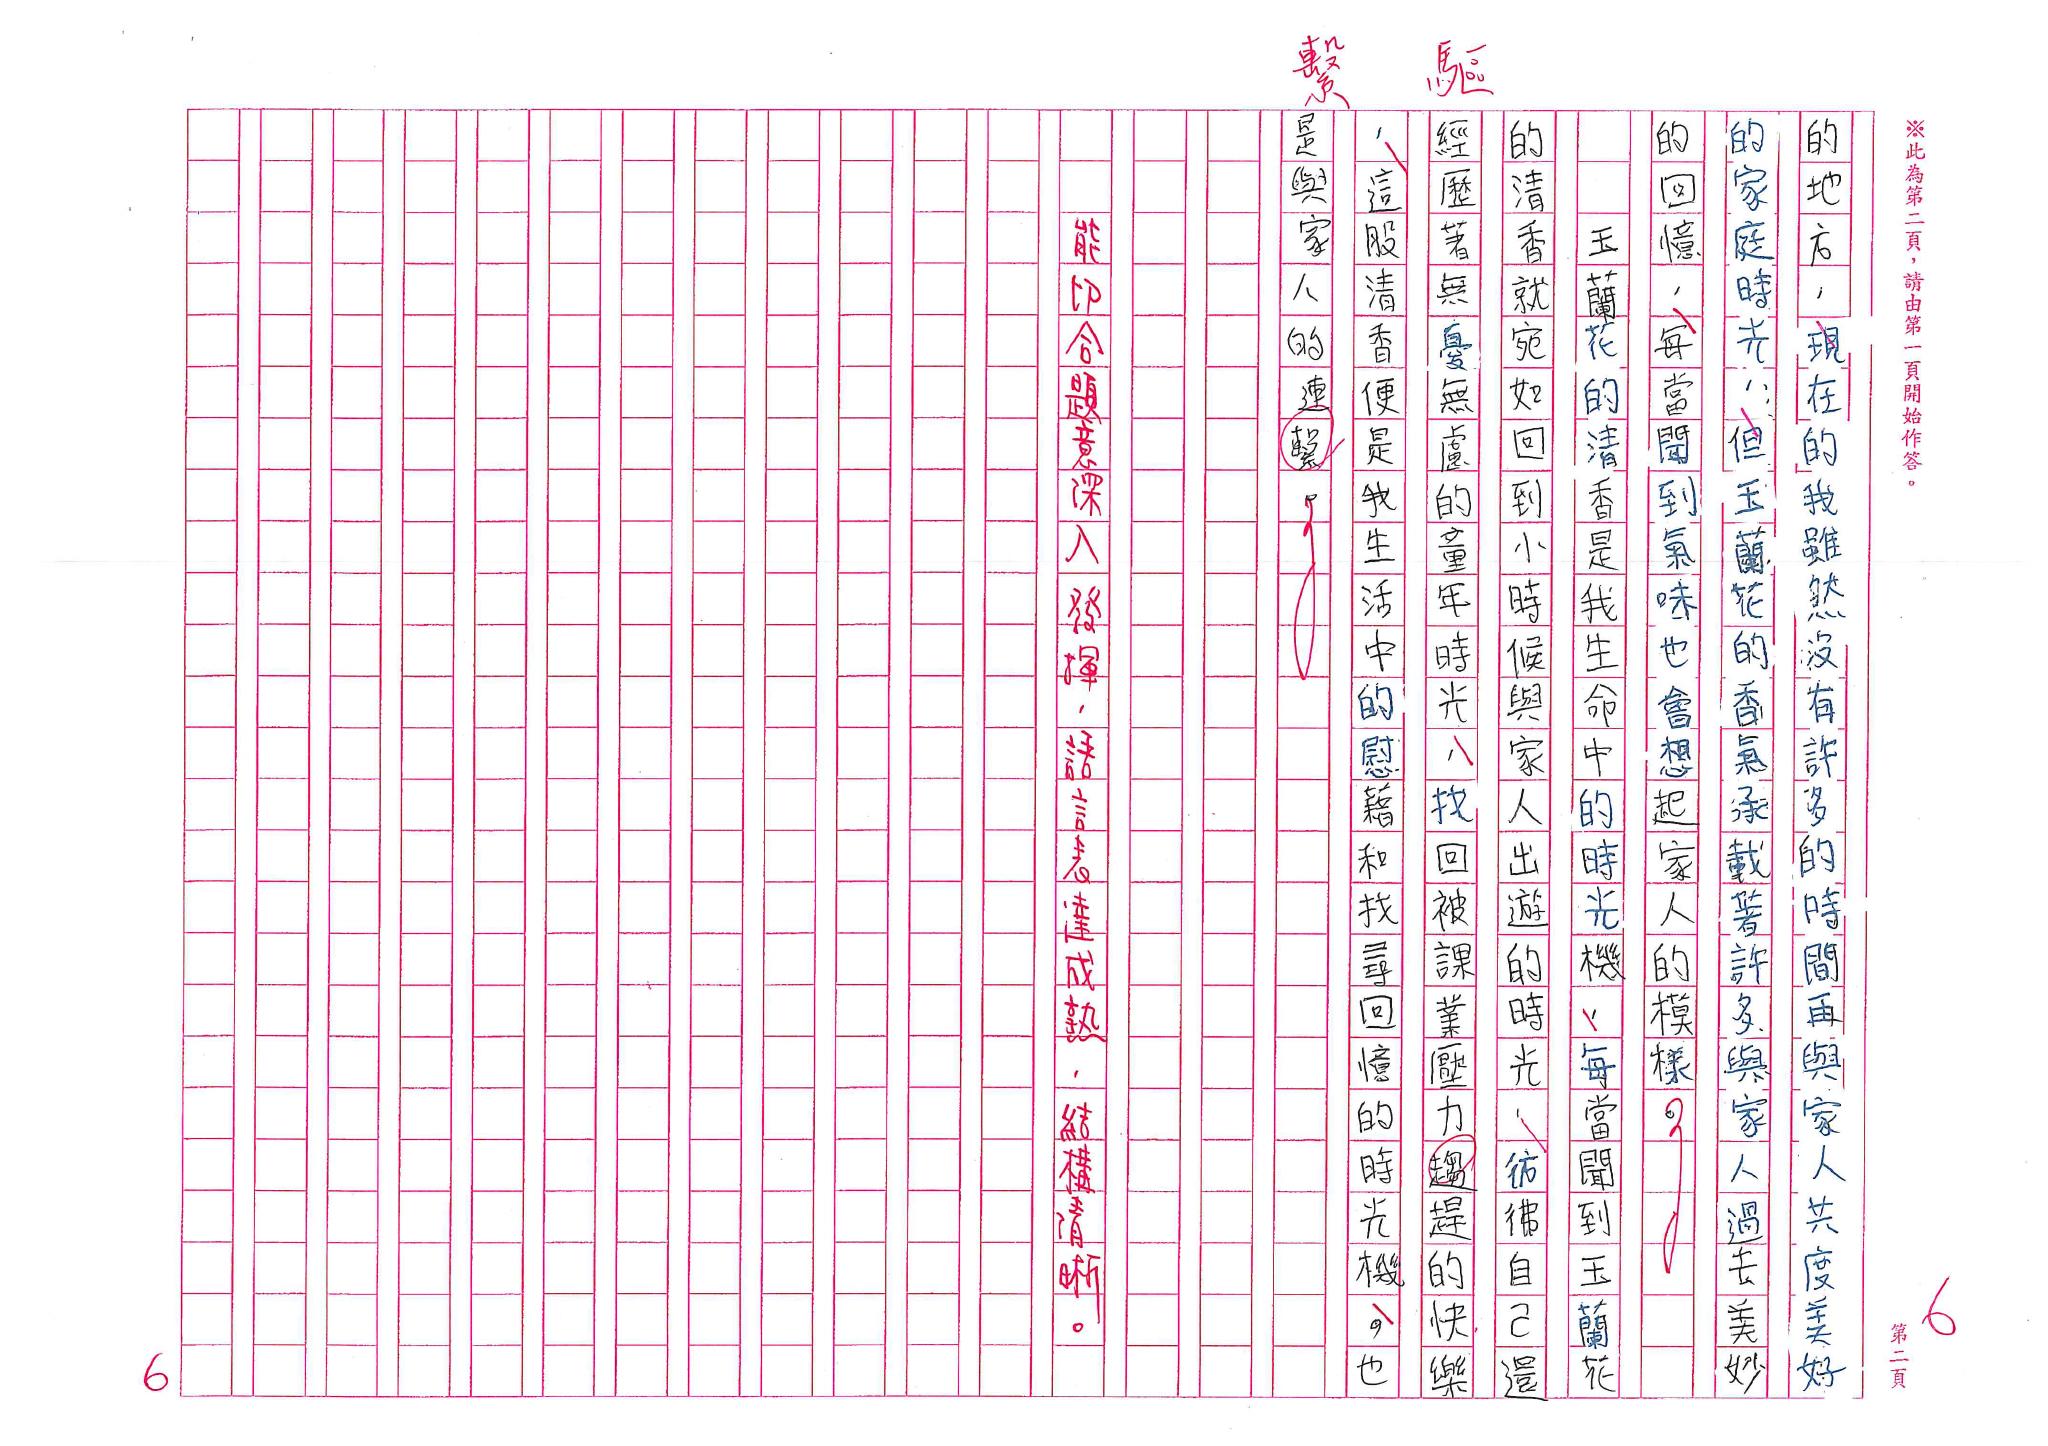 ※此為第二頁，請由第一頁開始作答。
第二頁
6
的地方，現在的我雖然沒有許多的時間再與家人共度美好
的家庭時光，但玉蘭花的香氣承載著許多與家人過去美妙
的回憶，每當聞到氣味也會想起家人的模樣。
玉蘭花的清香是我生命中的時光機，每當聞到玉蘭花
的清香就宛如回到小時候與家人出遊的時光，彷彿自己還
經歷著無憂無慮的童年時光，找回被課業壓力趨趕的快樂
，這股清香便是我生活中的慰藉和找尋回憶的時光機。也
是與家人的連繫。
驅
繫
能切合題意深入發揮，語言表達成熟，結構清晰。
6